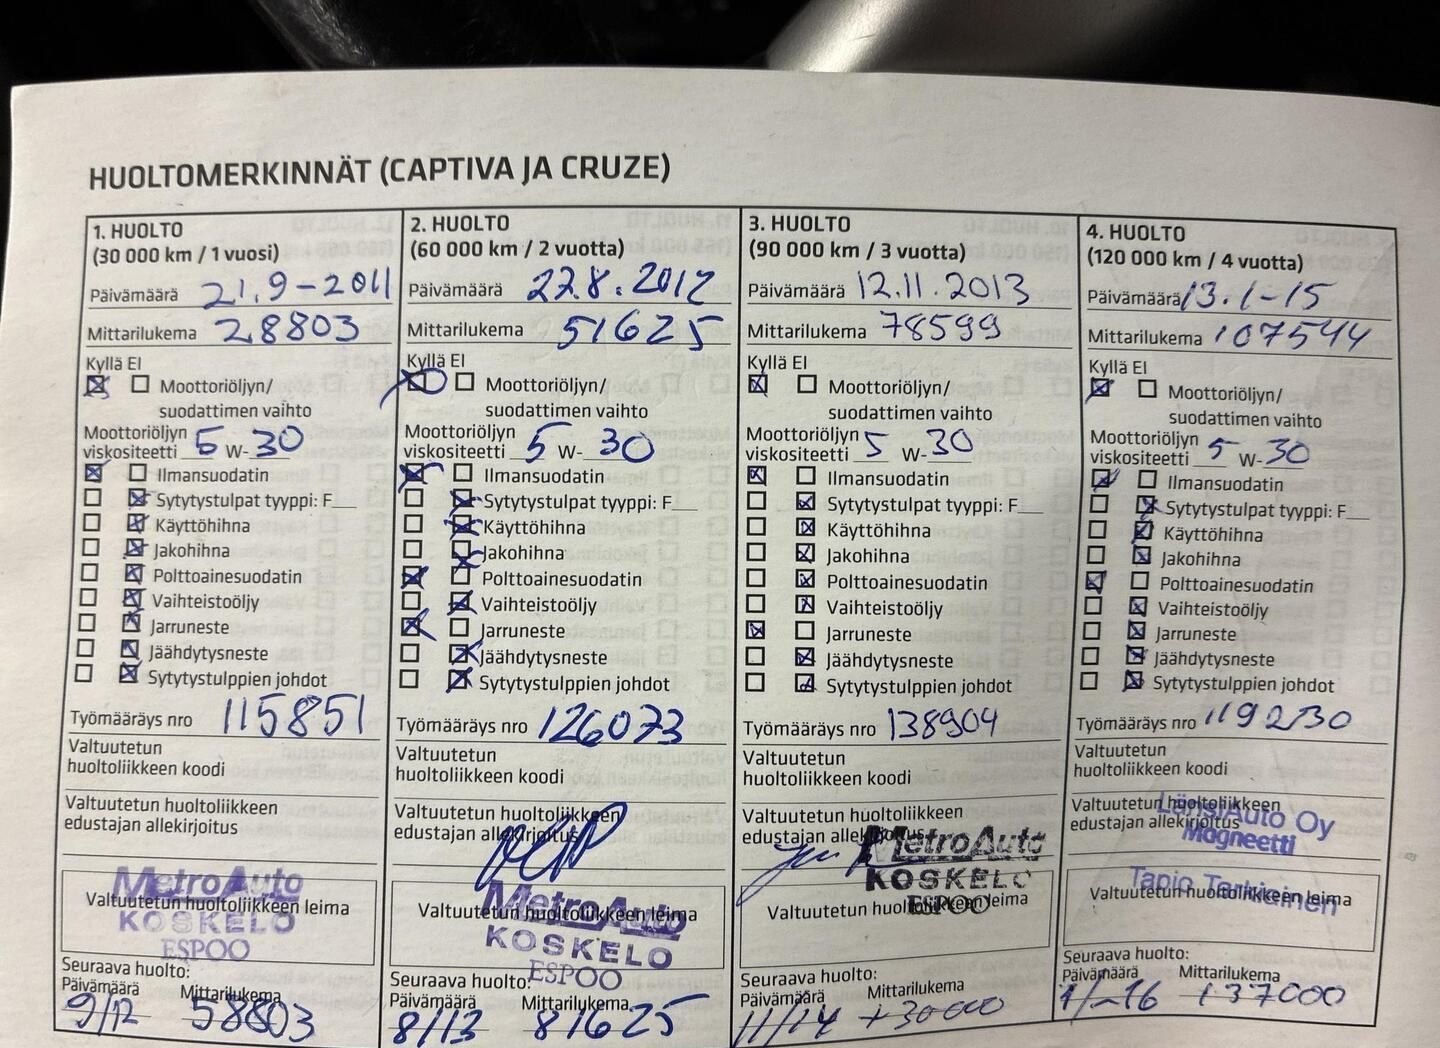 HUOLTOMERKINNÄT (CAPTIVA JA CRUZE)
1. HUOLTO
(30 000 km / 1 vuosi)
Päivämäärä 21.9-2011
Mittarilukema 28803
Kyllä EI
Moottoriöljyn/
suodattimen vaihto
Moottoriöljyn
viskositeetti 5 W-30
Ilmansuodatin
Sytytystulpat tyyppi: F__
Käyttöhihna
Jakohihna
Polttoainesuodatin
Vaihteistoöljy
Jarruneste
Jäähdytysneste
Sytytystulppien johdot
Työmääräys nro 115851
Valtuutetun
huoltoliikkeen koodi
Valtuutetun huoltoliikkeen
edustajan allekirjoitus
MetroAuto
Valtuutetun huoltoliikkeen leima
KOSKELO
ESPOO
Seuraava huolto:
Päivämäärä Mittarilukema
9/12 58803
2. HUOLTO
(60 000 km / 2 vuotta)
Päivämäärä 22.8.2012
Mittarilukema 51625
Kyllä EI
Moottoriöljyn/
suodattimen vaihto
Moottoriöljyn
viskositeetti 5 W-30
Ilmansuodatin
Sytytystulpat tyyppi: F__
Käyttöhihna
Jakohihna
Polttoainesuodatin
Vaihteistoöljy
Jarruneste
Jäähdytysneste
Sytytystulppien johdot
Työmääräys nro 126073
Valtuutetun
huoltoliikkeen koodi
Valtuutetun huoltoliikkeen
edustajan allekirjoitus
MetroAuto
Valtuutetun huoltoliikkeen leima
KOSKELO
ESPOO
Seuraava huolto:
Päivämäärä Mittarilukema
8/13 81625
3. HUOLTO
(90 000 km / 3 vuotta)
Päivämäärä 12.11.2013
Mittarilukema 78599
Kyllä EI
Moottoriöljyn/
suodattimen vaihto
Moottoriöljyn
viskositeetti 5 W-30
Ilmansuodatin
Sytytystulpat tyyppi: F__
Käyttöhihna
Jakohihna
Polttoainesuodatin
Vaihteistoöljy
Jarruneste
Jäähdytysneste
Sytytystulppien johdot
Työmääräys nro 138904
Valtuutetun
huoltoliikkeen koodi
Valtuutetun huoltoliikkeen
edustajan allekirjoitus
MetroAuto
KOSKELO
Valtuutetun huoltoliikkeen leima
ESPOO
Seuraava huolto:
Päivämäärä Mittarilukema
11/14 +30000
4. HUOLTO
(120 000 km / 4 vuotta)
Päivämäärä 13.1-15
Mittarilukema 107544
Kyllä EI
Moottoriöljyn/
suodattimen vaihto
Moottoriöljyn
viskositeetti 5 W-30
Ilmansuodatin
Sytytystulpat tyyppi: F__
Käyttöhihna
Jakohihna
Polttoainesuodatin
Vaihteistoöljy
Jarruneste
Jäähdytysneste
Sytytystulppien johdot
Työmääräys nro
Valtuutetun
huoltoliikkeen koodi
Valtuutetun huoltoliikkeen
LänsiAuto Oy
edustajan allekirjoitus
Magneetti
Tapio Tarkkeinen
Valtuutetun huoltoliikkeen leima
Seuraava huolto:
Päivämäärä Mittarilukema
1/-16 137000